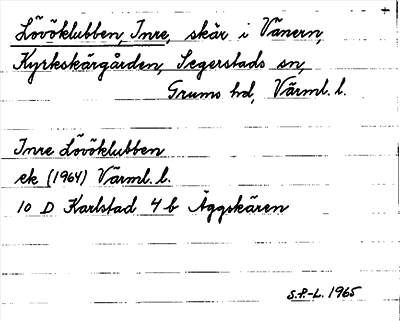 Lövöklubben, Inre, skär i Vänern,
Kyrkskärgården, Segerstads sn,
Grums hd, Värml. l.
Inre Lövöklubben
ek (1964) Värml. l.
10 D Karlstad 4 b Äggskären
S.P.-L. 1965